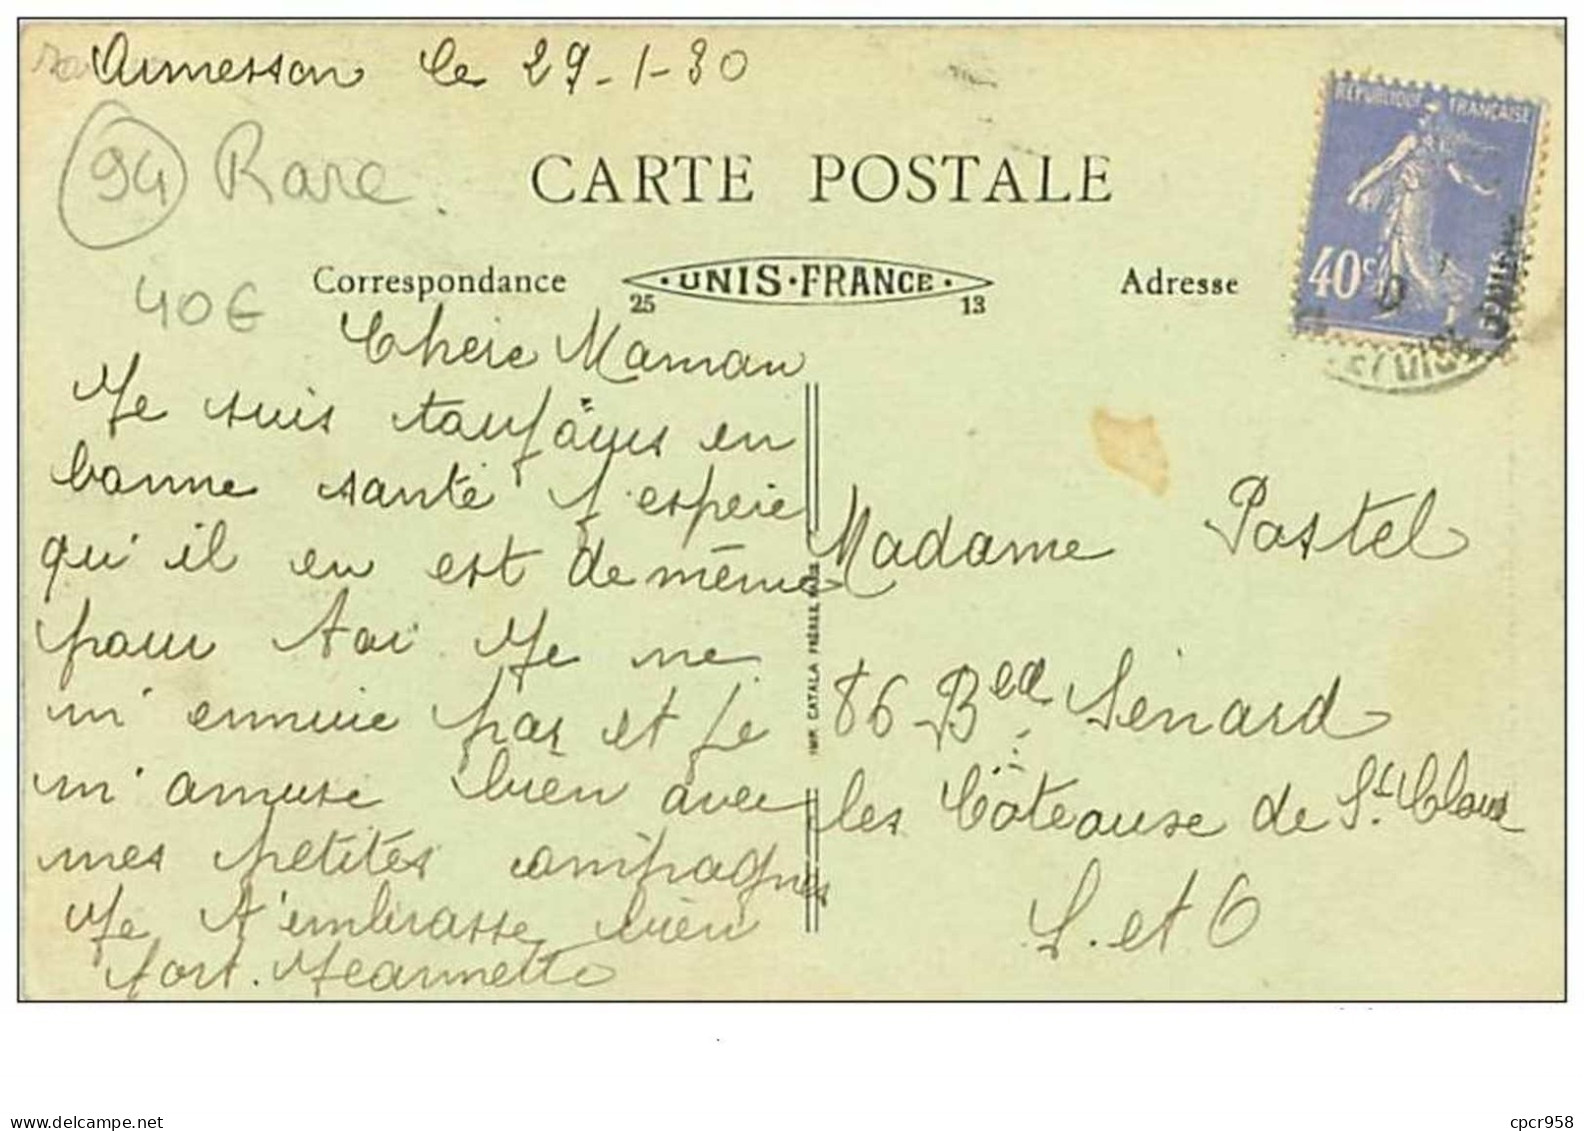 Ormesson le 29-1-30
94 Rare
40€
CARTE POSTALE
Correspondance
·UNIS·FRANCE·
25 13
Adresse
RÉPUBLIQUE FRANÇAISE
40c
Cherie Maman
Je suis toujours en
bonne santé j'espere
qu'il en est de même
pour toi Je ne
m'ennuie pas et je
m'amuse bien avec
mes petites compagnes
Je t'embrasse bien
fort. Jeannette
IMP. CATALA FRÈRES, PARIS
Madame Postel
86 Bed Sénard
les Côteause de St. Cloud
S. et O
cpcr958